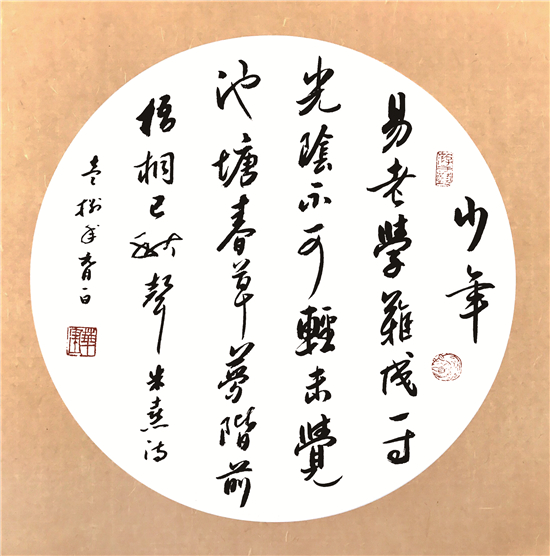 少年
易老學難成一寸
光陰不可輕未覺
池塘春草夢階前
梧桐已秋聲 朱熹詩